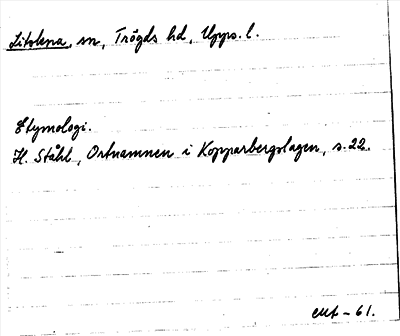 Litslena, sn, Trögds hd, Upps. l.
Etymologi.
H. Ståhl, Ortnamnen i Kopparbergslagen, s. 22.
-61.